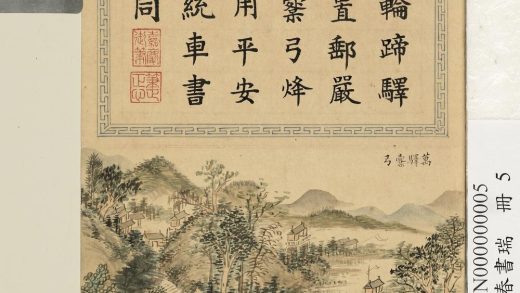 輪蹄驛
置郵嚴
櫜弓烽
用平安
統車書
同
萬驛櫜弓
N000000005
春書瑞 冊 5